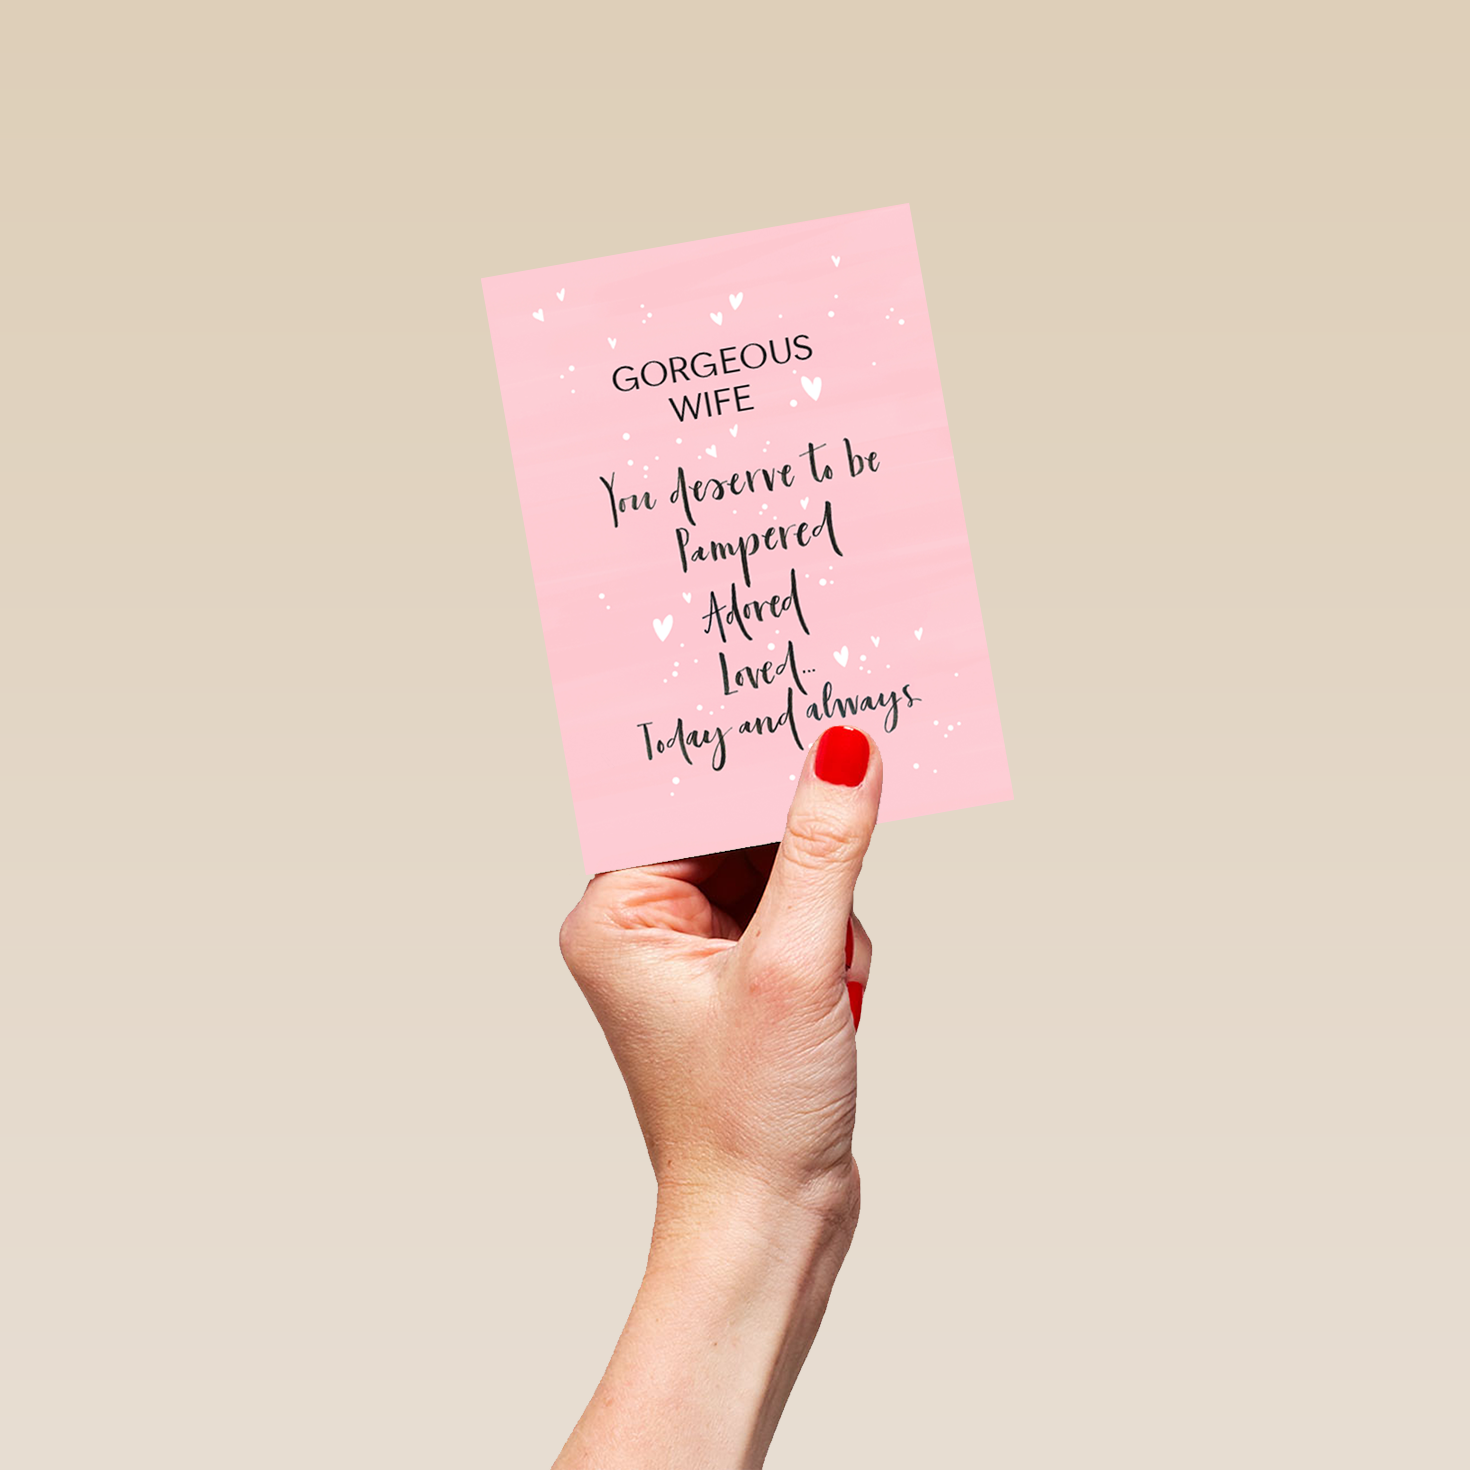 GORGEOUS
WIFE
You deserve to be
Pampered
Adored
Loved...
Today and always